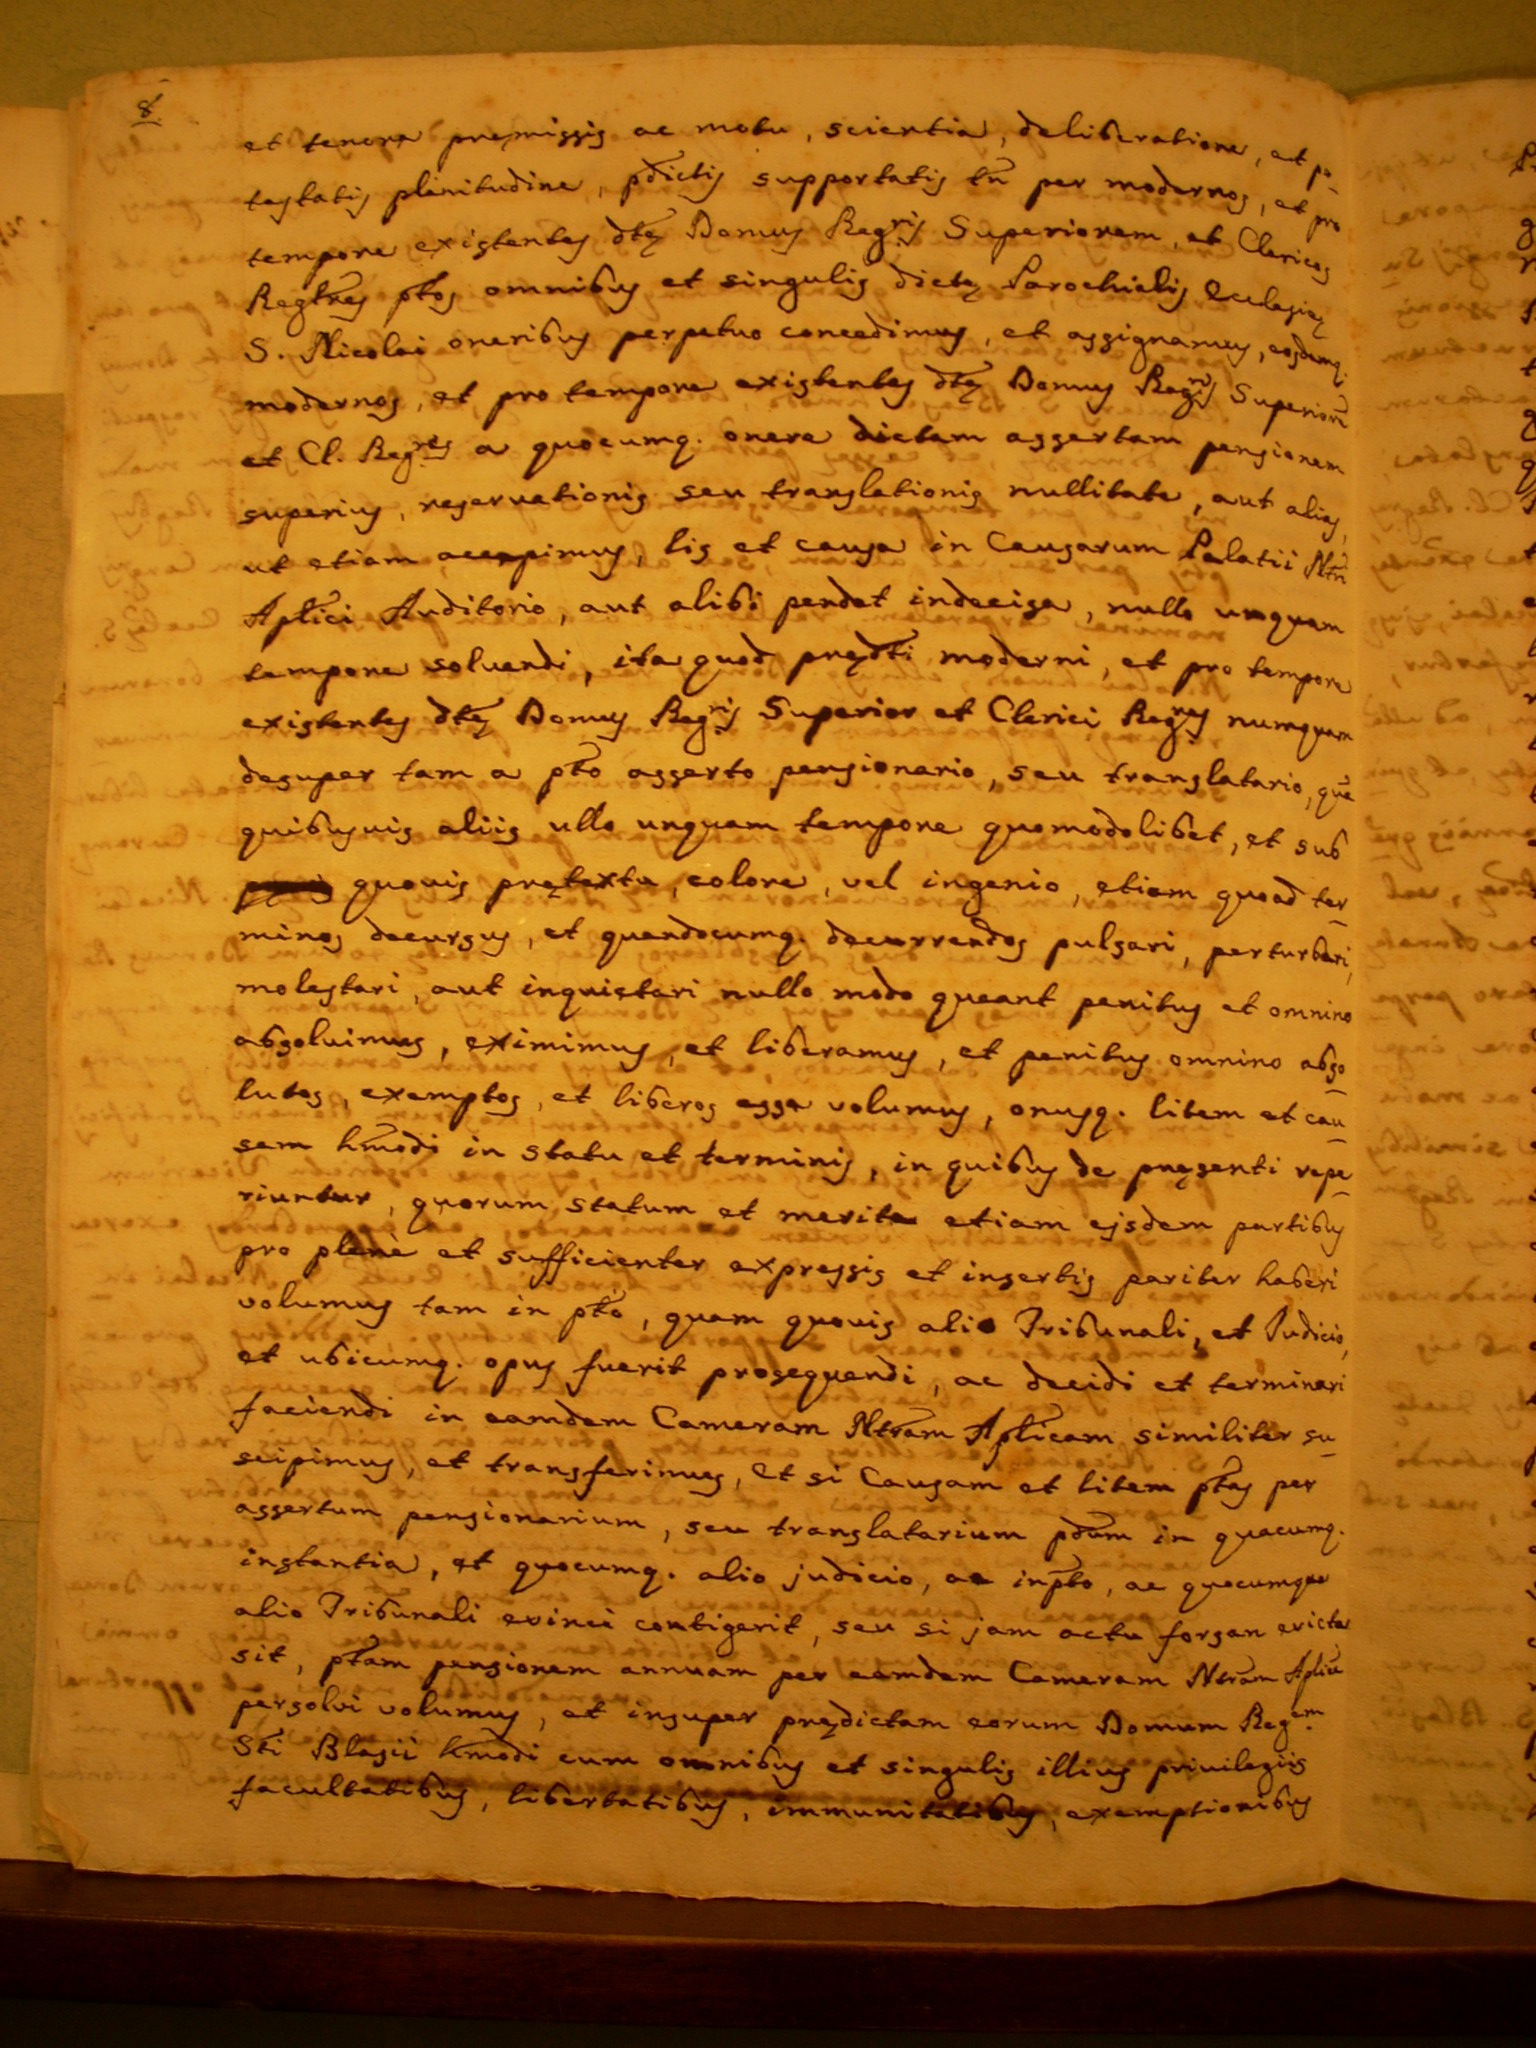 8.
et tenore pręmissis ac motu, scientia, deliberatione, et po-
testatis plenitudine, pďictis supportatis tñ per modernos, et pro
tempore existentes dtę Domus Reg.ris Superiorem, et Clericos
Reglres ptos omnibus et singulis dictę Parochialis Ecclesię
S. Nicolai oneribus perpetuo concedimus, et assignamus, eosdemq.
modernos, et pro tempore existentes dtę Domus Reg.ris Superiore
et Cl. Reg.res a quocumq. onere dictam assertam pensionem
superius, reservationis seu translationis nullitate, aut alias,
ut etiam accepimus, lis et causa in Causarum Palatii Ntri
Aplici Auditorio, aut alibi pendet indecisa, nullo umquam
tempore solvendi, ita quod prędti moderni, et pro tempore
existentes dtę Domus Reg.ris Superior et Clerici Reg.res numquam
desuper tam a pto asserto pensionario, seu translatario, que
quibusvis aliis ullo unquam tempore quomodolibet, et sub
quovis prętextu, colore, vel ingenio, etiam quoad ter-
minos decursus, et quandocumq. decurrendos pulsari, perturbari,
molestari, aut inquietari nullo modo queant penitus et omnino
absolvimus, eximimus, et liberamus, et penitus omnino abso-
lutos, exemptos, et liberos esse volumus, onusq. litem et cau-
sam hmodi in statu et terminis, in quibus de pręsenti repe-
riuntur, quorum statum et merita etiam ejsdem partibus
pro plenè et sufficienter expressis et insertis pariter haberi
volumus tam in pto, quam quovis alio Tribunali, et Judicio,
et ubicumq. opus fuerit prosequendi, ac decidi et terminari
faciendi in eamdem Cameram Ntram Aplicam similiter su-
scipimus, et transferimus, Et si Causam et litem ptas per
assertum pensionarium, seu translatarium pdum in quacumq.
instantia, et quocumq. alio judicio, ac in pto, ac quocumque
alio Tribunali evinci contigerit, seu si jam actu forsan evicta
sit, ptam pensionem annuam per eamdem Cameram Ntram Aplica
persolvi volumus, et insuper prędictam eorum Domum Reg.em
Sti Blasii hmodi cum omnibus et singulis illius privilegiis
facultatibus, libertatibus, immunitatibus, exemptionibus